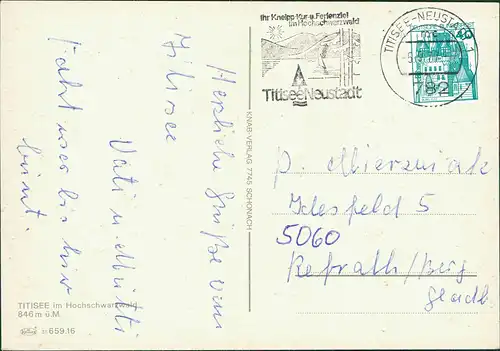 Ihr Kneipp-Kur-u.Ferienziel
im Hochschwarzwald
TitiseeNeustadt
TITISEE-NEUSTADT 1
782
40
Herzliche Grüße vom
Titisee
Vati u. Mutti
Fahrt
KNAB-VERLAG 7745 SCHONACH
P. Mierzwiak
5
5060
Refrath/Berg
Gladb
TITISEE im Hochschwarzwald
846 m ü.M.
659.16